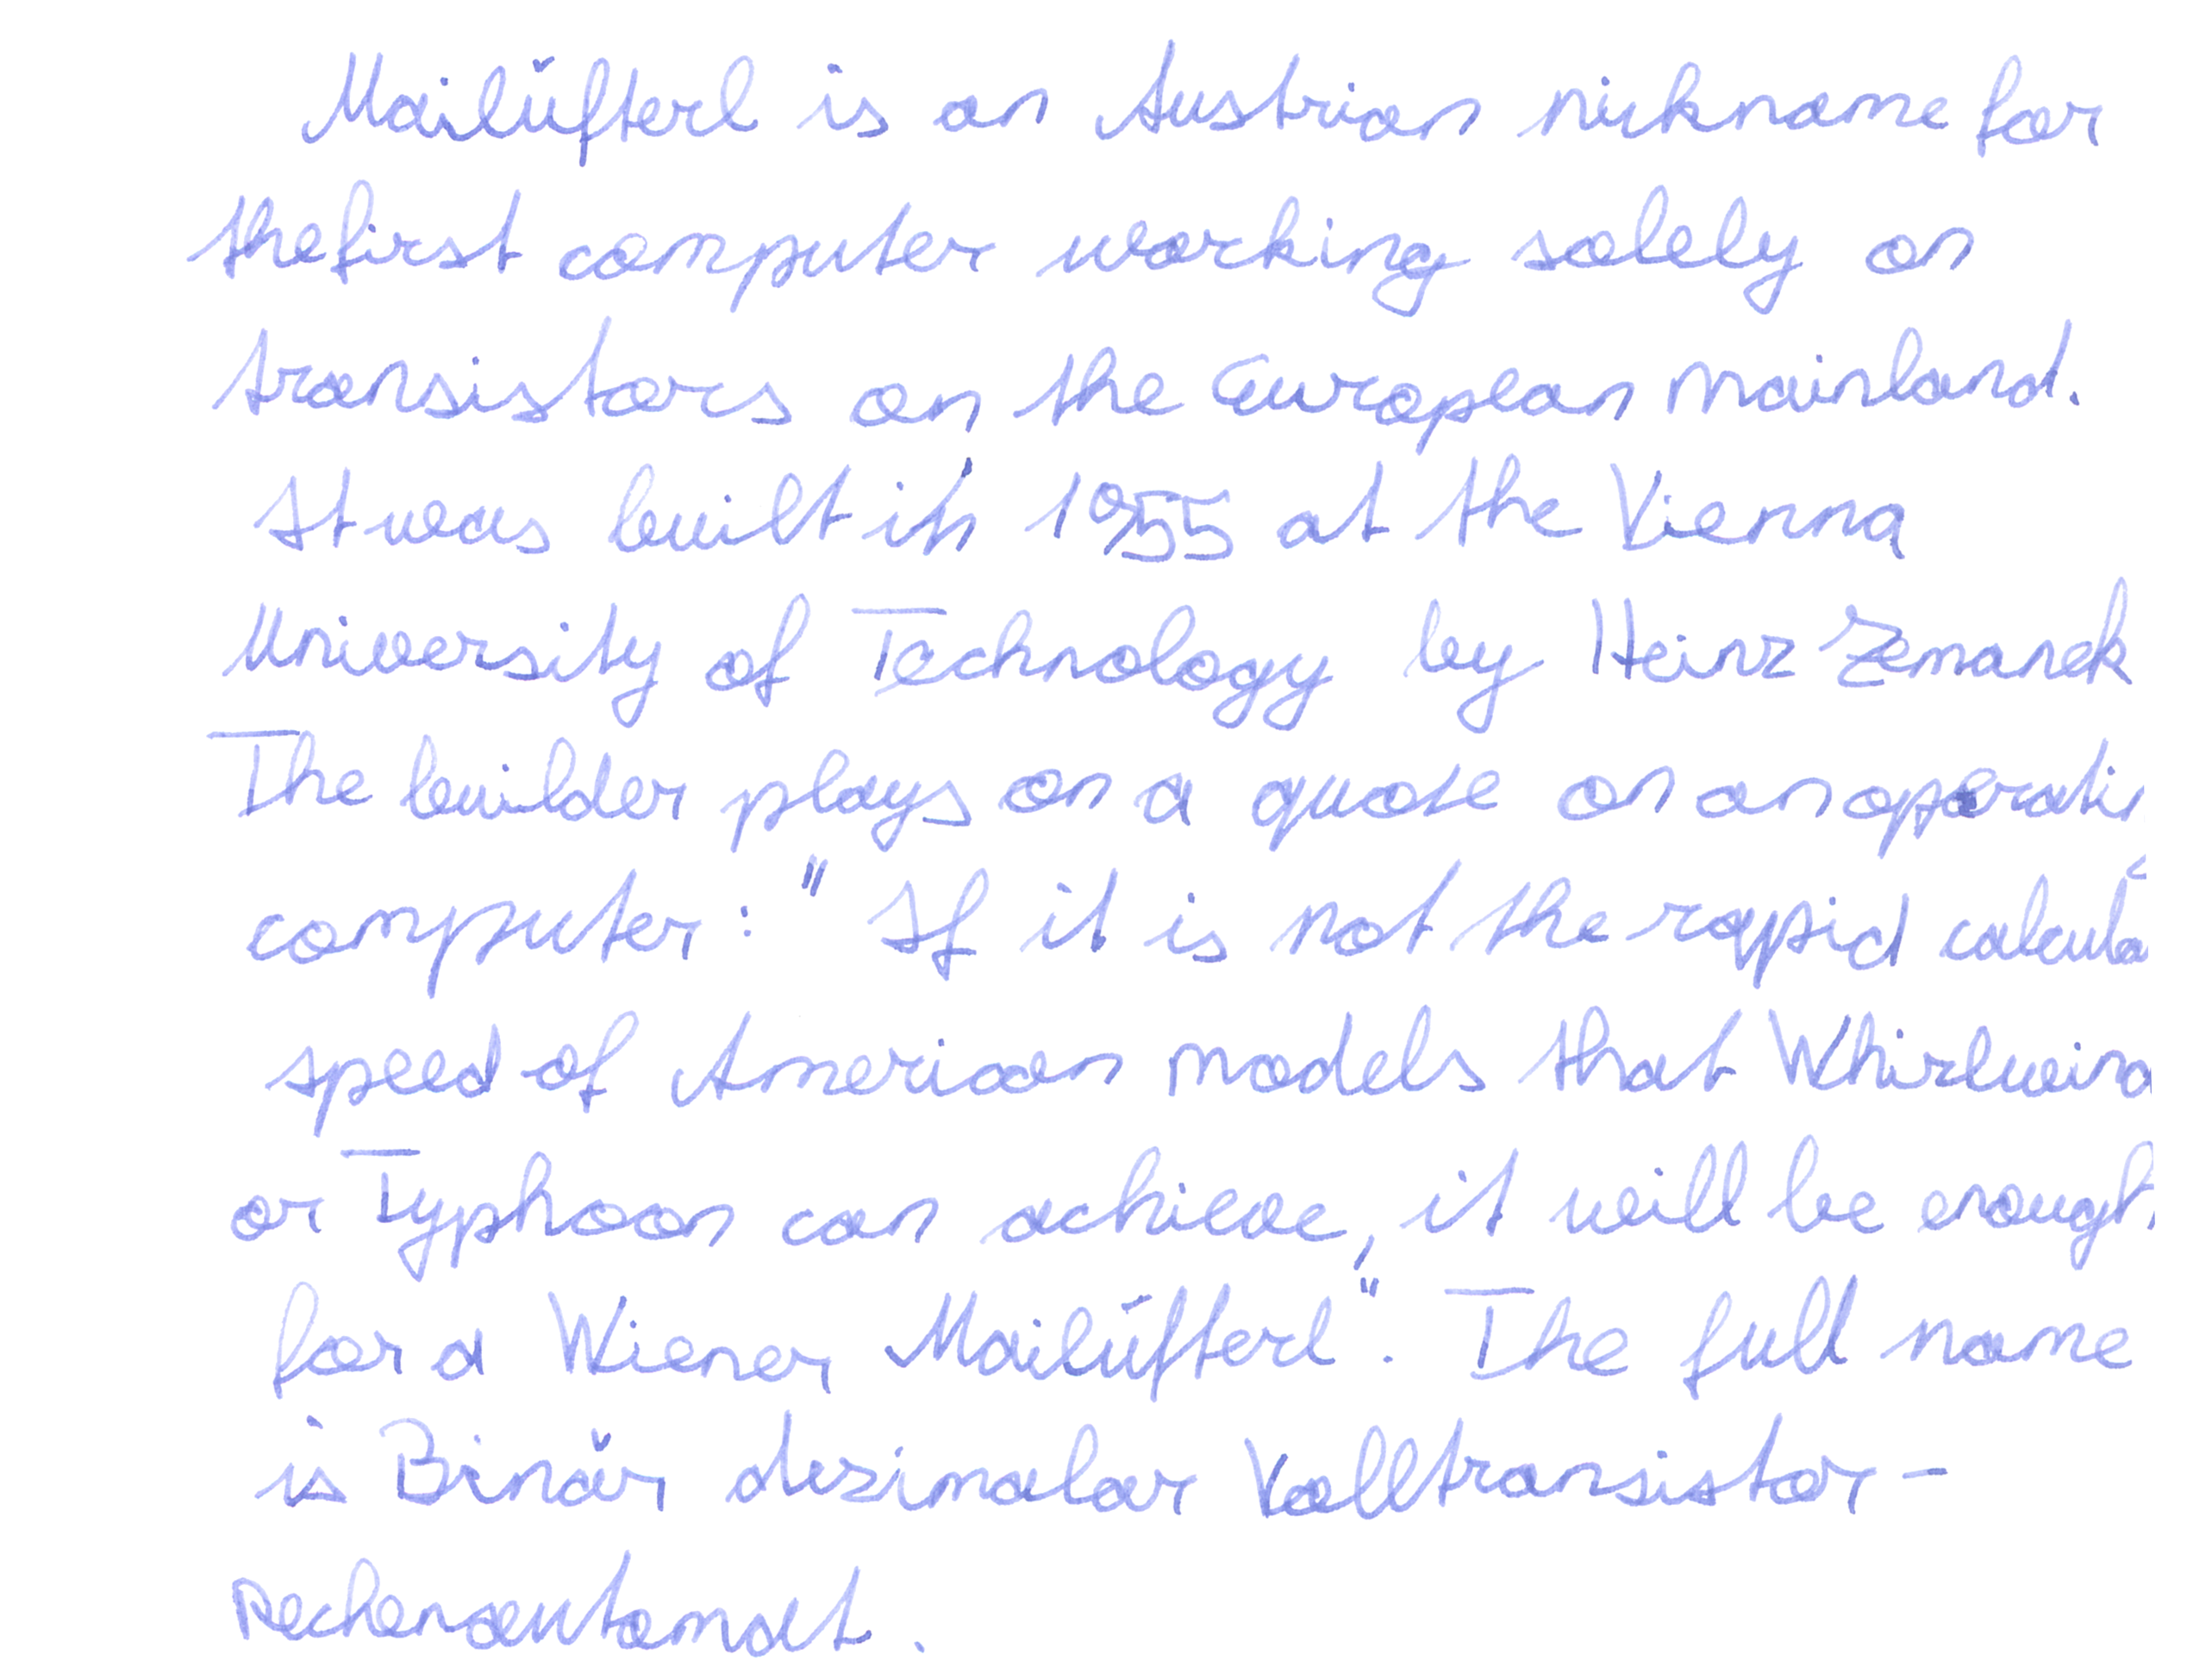 Mailüfterl is an Austrian nickname for
the first computer working solely on
transistors on the European mainland.
It was built in 1955 at the Vienna
University of Technology by Heinz Zemanek
The builder plays on a quote on an operatin
computer: "If it is not the rapid calcula
speed of American models that Whirlwind
or Typhoon can achieve, it will be enough
for a Wiener Mailüfterl". The full name
is Binär dezimalar Volltransistor-
Rechenautomat.